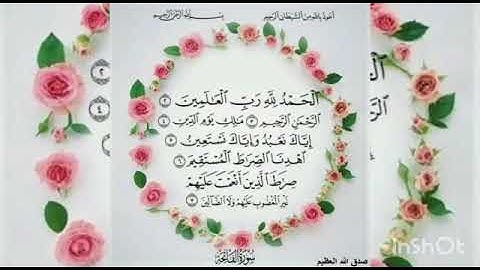 أعوذ بالله من الشيطان الرجيم
بسم الله الرحمن الرحيم
ٱلْحَمْدُ لِلَّهِ رَبِّ ٱلْعَـٰلَمِينَ ٢
ٱلرَّحْمَـٰنِ ٱلرَّحِيمِ ٣ مَـٰلِكِ يَوْمِ ٱلدِّينِ ٤
إِيَّاكَ نَعْبُدُ وَإِيَّاكَ نَسْتَعِينُ ٥
ٱهْدِنَا ٱلصِّرَٰطَ ٱلْمُسْتَقِيمَ ٦
صِرَٰطَ ٱلَّذِينَ أَنْعَمْتَ عَلَيْهِمْ
غَيْرِ ٱلْمَغْضُوبِ عَلَيْهِمْ وَلَا ٱلضَّآلِّينَ ٧
سُورَةُ ٱلْفَاتِحَةِ
صدق الله العظيم
InShot